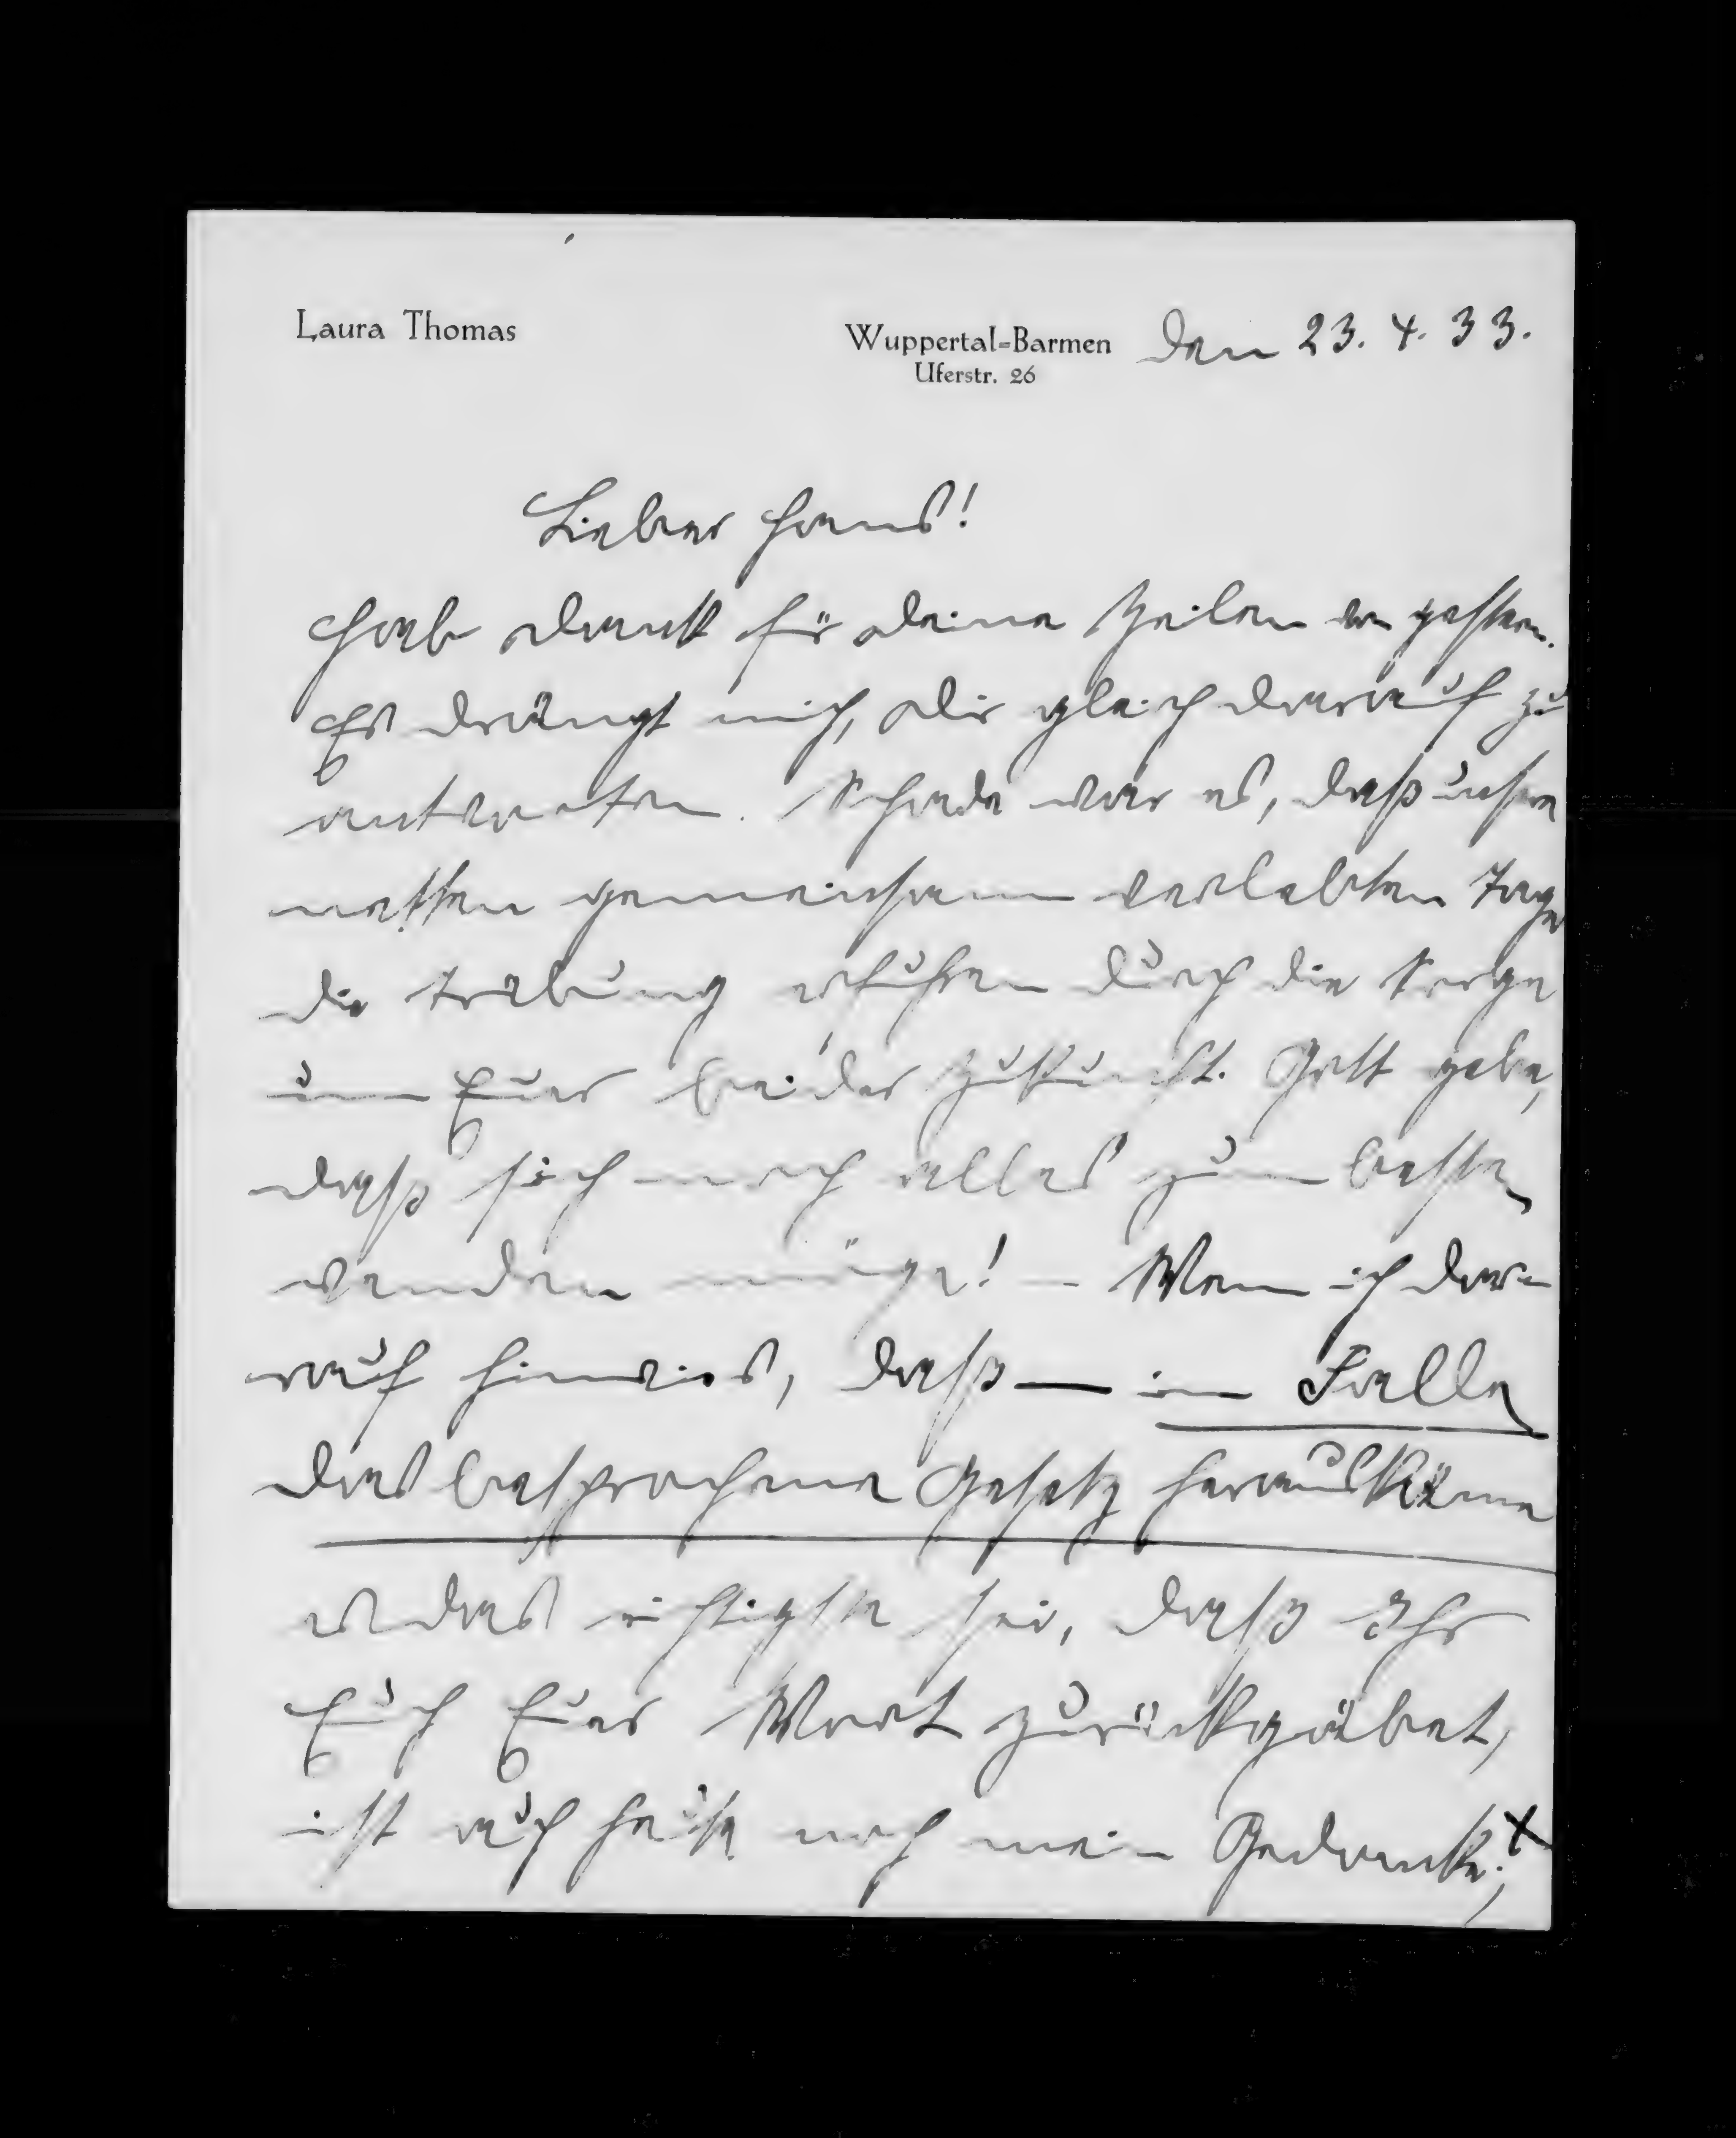 Laura Thomas
Wuppertal-Barmen den 23. 4. 33.
Uferstr. 26
Lieber Hans!
Hab Dank für Deine Zeilen von gestern.
Es drängt mich, Dir gleich darauf zu
antworten. Schade war es, daß unsere
netten gemeinsam verlebten Tage
die Trübung erfuhren durch die Sorge
um Euer beider Zukunft. Gott gebe,
daß sich noch alles zum besten
wenden möge! – Wenn ich da-
rauf hinwies, daß — im Falle
das besprochene Gesetz herauskäme
es das richtigste sei, daß Ihr
Euch Euer Wort zurückgäbet,
ist auch heute noch mein Gedanke;